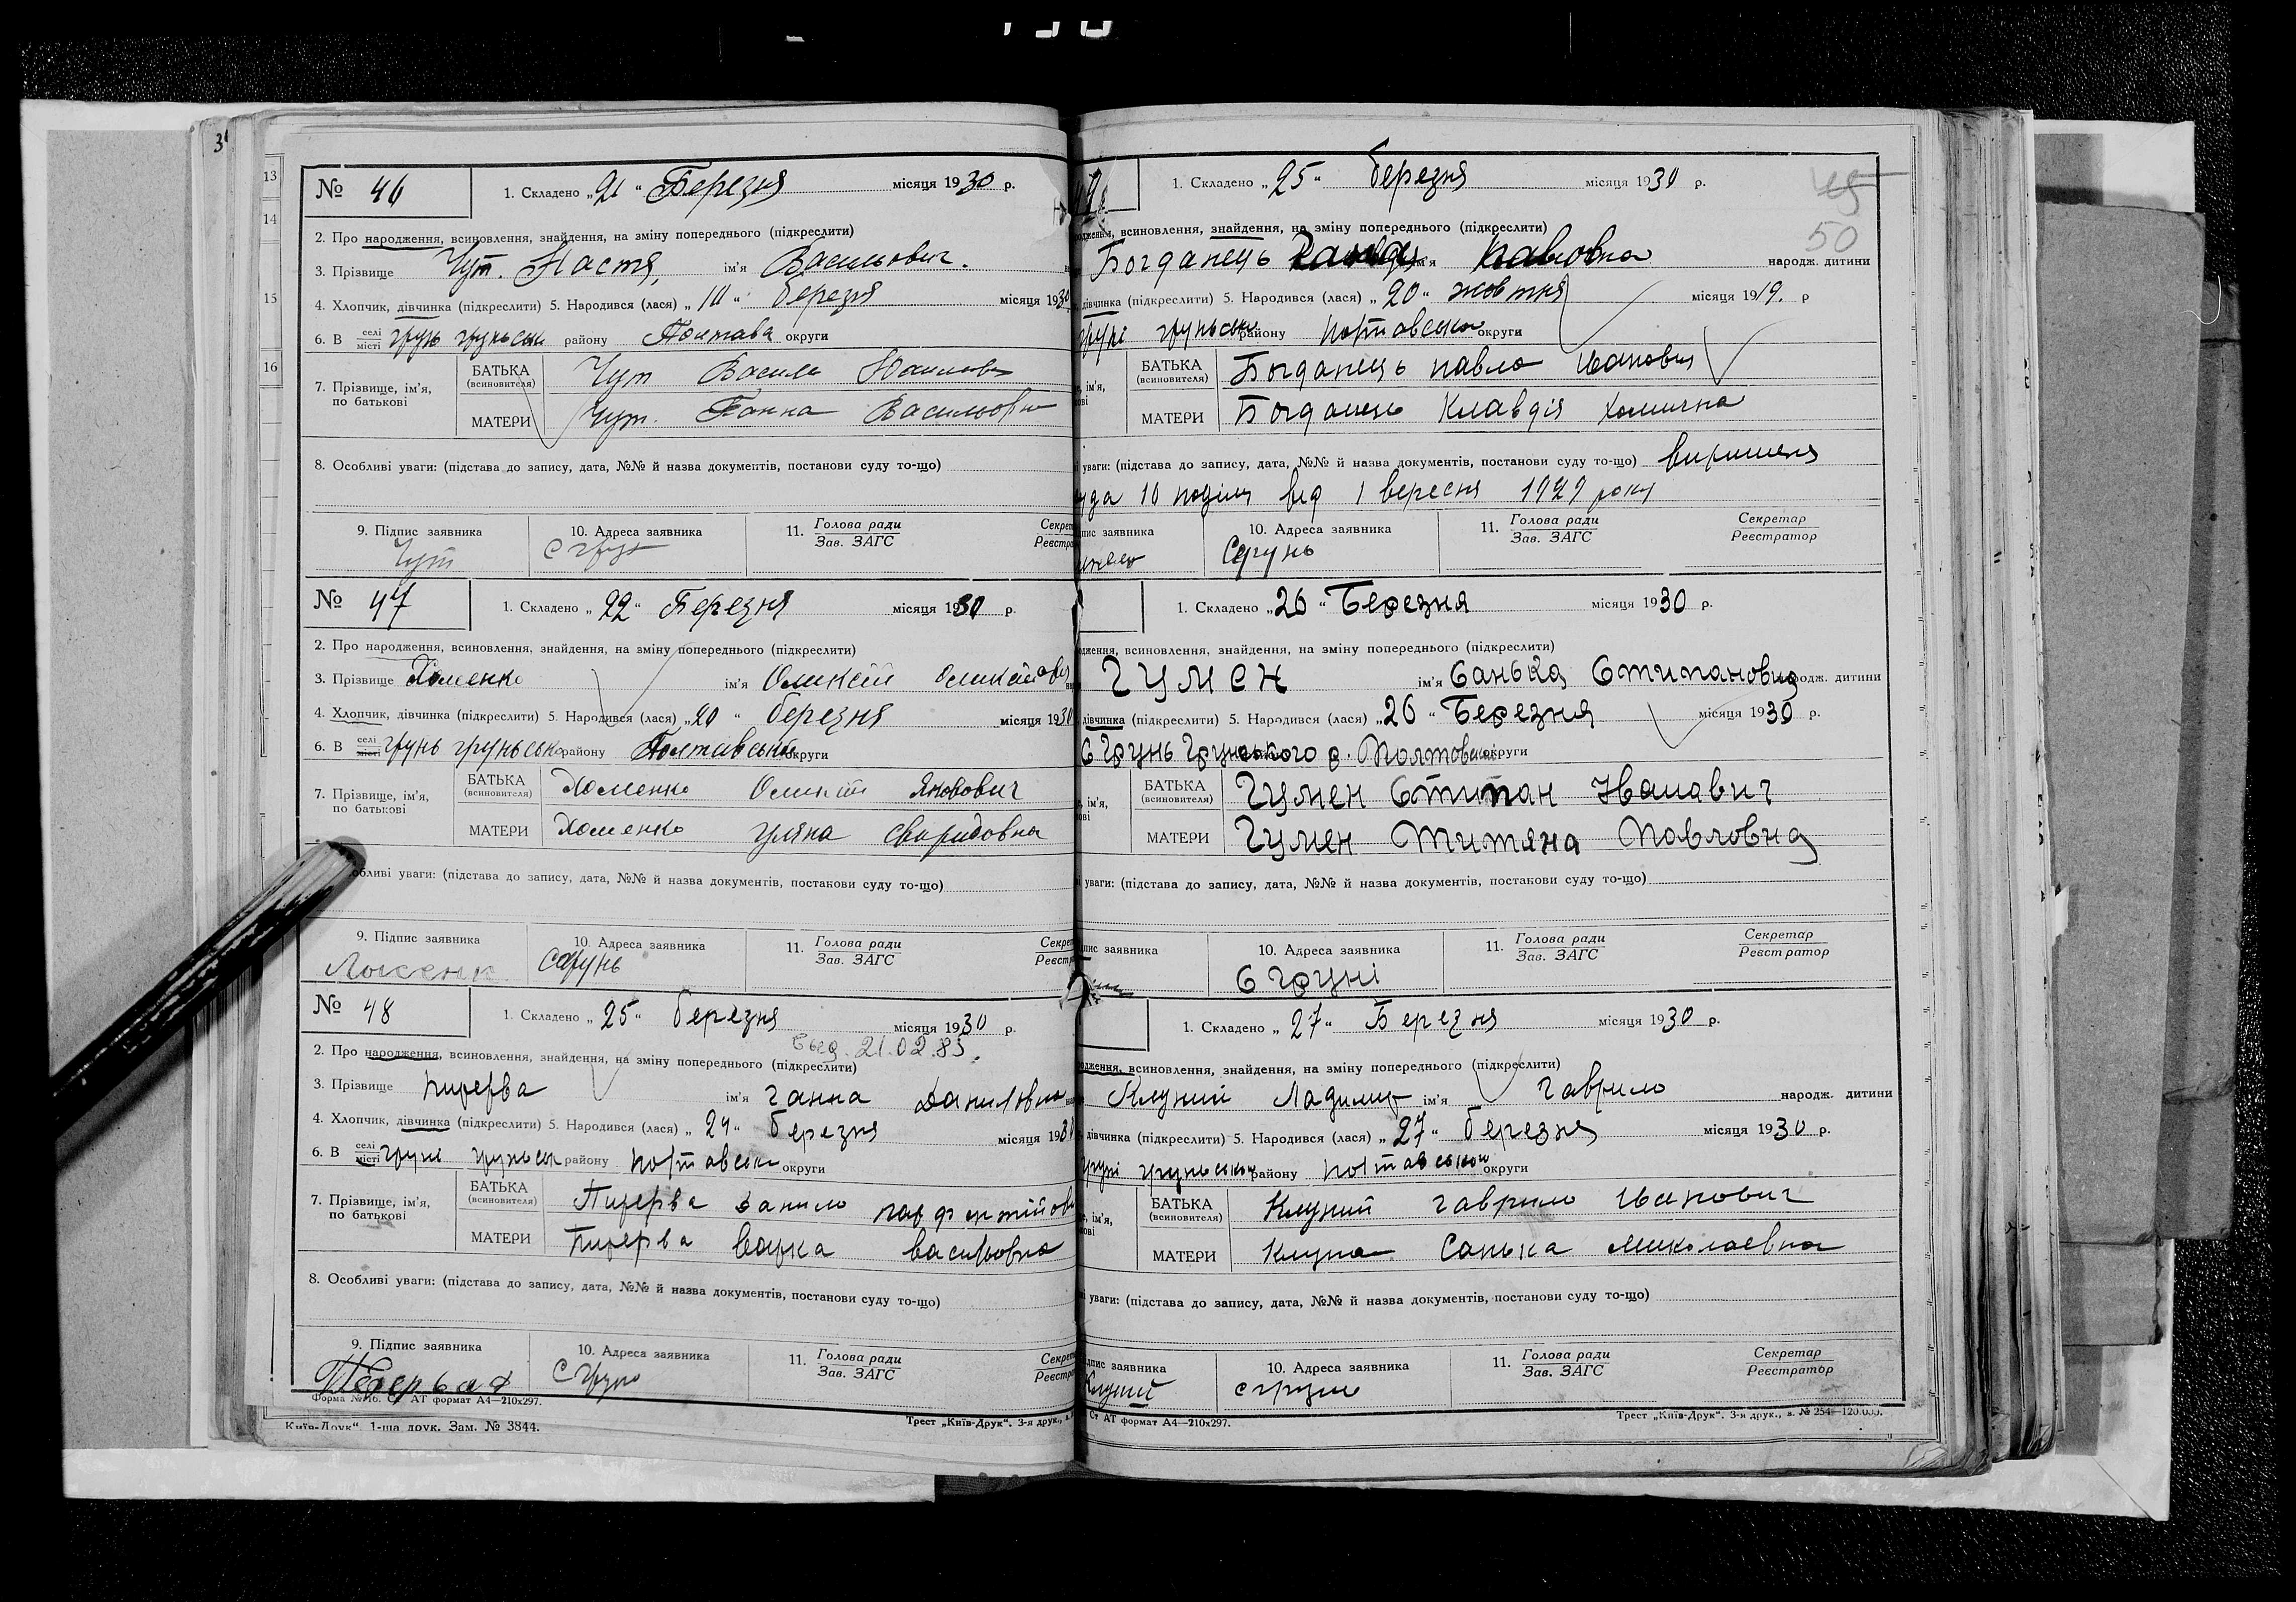 3
13
14
15
16
№ 46
1. Складено „21“ Березня місяця 1930 р.
2. Про народження, всиновлення, знайдення, на зміну попереднього (підкреслити)
3. Прізвище Чут. Настя, ім'я Васильович.
4. Хлопчик, дівчинка (підкреслити) 5. Народився (лася) „ “ березня місяця 1930
6. В селі місті грунь грунськ району Полтава округи
7. Прізвище, ім'я, по батькові
БАТЬКА (всиновителя) Чут Василь
МАТЕРИ Чут. Ганна Васильовна
8. Особливі уваги: (підстава до запису, дата, №№ й назва документів, постанови суду то-що)
9. Підпис заявника 10. Адреса заявника 11. Голова ради Зав. ЗАГС
Чут с грунь
№ 47
1. Складено „22“ Березня місяця 1930 р.
2. Про народження, всиновлення, знайдення, на зміну попереднього (підкреслити)
3. Прізвище Хоменко ім'я Оликсій Оликсійови
4. Хлопчик, дівчинка (підкреслити) 5. Народився (лася) „20“ березня місяця 1930
6. В селі місті грунь грунсько району Полтавсько округи
7. Прізвище, ім'я, по батькові
БАТЬКА (всиновителя) Хоменко Оликсій Якович
МАТЕРИ Хоменко уляна свиридовна
обливі уваги: (підстава до запису, дата, №№ й назва документів, постанови суду то-що)
9. Підпис заявника 10. Адреса заявника 11. Голова ради Зав. ЗАГС
Сгрунь
№ 48
1. Складено „25“ березня місяця 1930 р.
21.02.85.
2. Про народження, всиновлення, знайдення, на зміну попереднього (підкреслити)
3. Прізвище Пирерва ім'я ганна Даниловна
4. Хлопчик, дівчинка (підкреслити) 5. Народився (лася) „24“ березня місяця 1930
6. В селі місті груні грунськ району полтавськ округи
7. Прізвище, ім'я, по батькові
БАТЬКА (всиновителя) Пирерва данило
МАТЕРИ Пирерва Варка васильовна
8. Особливі уваги: (підстава до запису, дата, №№ й назва документів, постанови суду то-що)
9. Підпис заявника 10. Адреса заявника 11. Голова ради Зав. ЗАГС
с Грунь
АТ формат А4—210х297.
Київ-Друк“. 1-ша друк. Зам. № 3844.
Трест „Київ-Друк“. 3-я друк.,
49
1. Складено „25“ березня місяця 1930 р.
45
50
всиновлення, знайдення, на зміну попереднього (підкреслити)
Богданець ім'я павловна народж. дитини
дівчинка (підкреслити) 5. Народився (лася) „20“ жовтня місяця 1919. р
груні грунськи району полтавсько округи
БАТЬКА (всиновителя) Богданець павло Іванович
МАТЕРИ Богданець Клавдія хомична
уваги: (підстава до запису, дата, №№ й назва документів, постанови суду то-що) виришеня
суда 10 поділу від 1 вересня 1929 року
заявника 10. Адреса заявника 11. Голова ради Зав. ЗАГС Секретар Реєстратор
Сгрунь
1. Складено „26“ Березня місяця 1930 р.
всиновлення, знайдення, на зміну попереднього (підкреслити)
Гумен ім'я Санька Стипановна народж. дитини
дівчинка (підкреслити) 5. Народився (лася) „26“ Березня місяця 1930 р.
С Грунь Грунського р. Полтовськи округи
БАТЬКА (всиновителя) Гумен Стипан Иванавич
МАТЕРИ Гумен Титяна Павловна
уваги: (підстава до запису, дата, №№ й назва документів, постанови суду то-що)
заявника 10. Адреса заявника 11. Голова ради Зав. ЗАГС Секретар Реєстратор
С Груні
1. Складено „27“ Березня місяця 1930 р.
всиновлення, знайдення, на зміну попереднього (підкреслити)
Клуний Ладимир ім'я гаврило народж. дитини
дівчинка (підкреслити) 5. Народився (лася) „27“ березня місяця 1930 р.
груні грунськои району полтавськои округи
БАТЬКА (всиновителя) Клуний гаврило Иванович
МАТЕРИ Клуна Санька миколаевна
уваги: (підстава до запису, дата, №№ й назва документів, постанови суду то-що)
заявника 10. Адреса заявника 11. Голова ради Зав. ЗАГС Секретар Реєстратор
Клуний с груни
Ст АТ формат А4—210х297.
Трест „Київ-Друк“. 3-я друк., з. № 254—120.000.